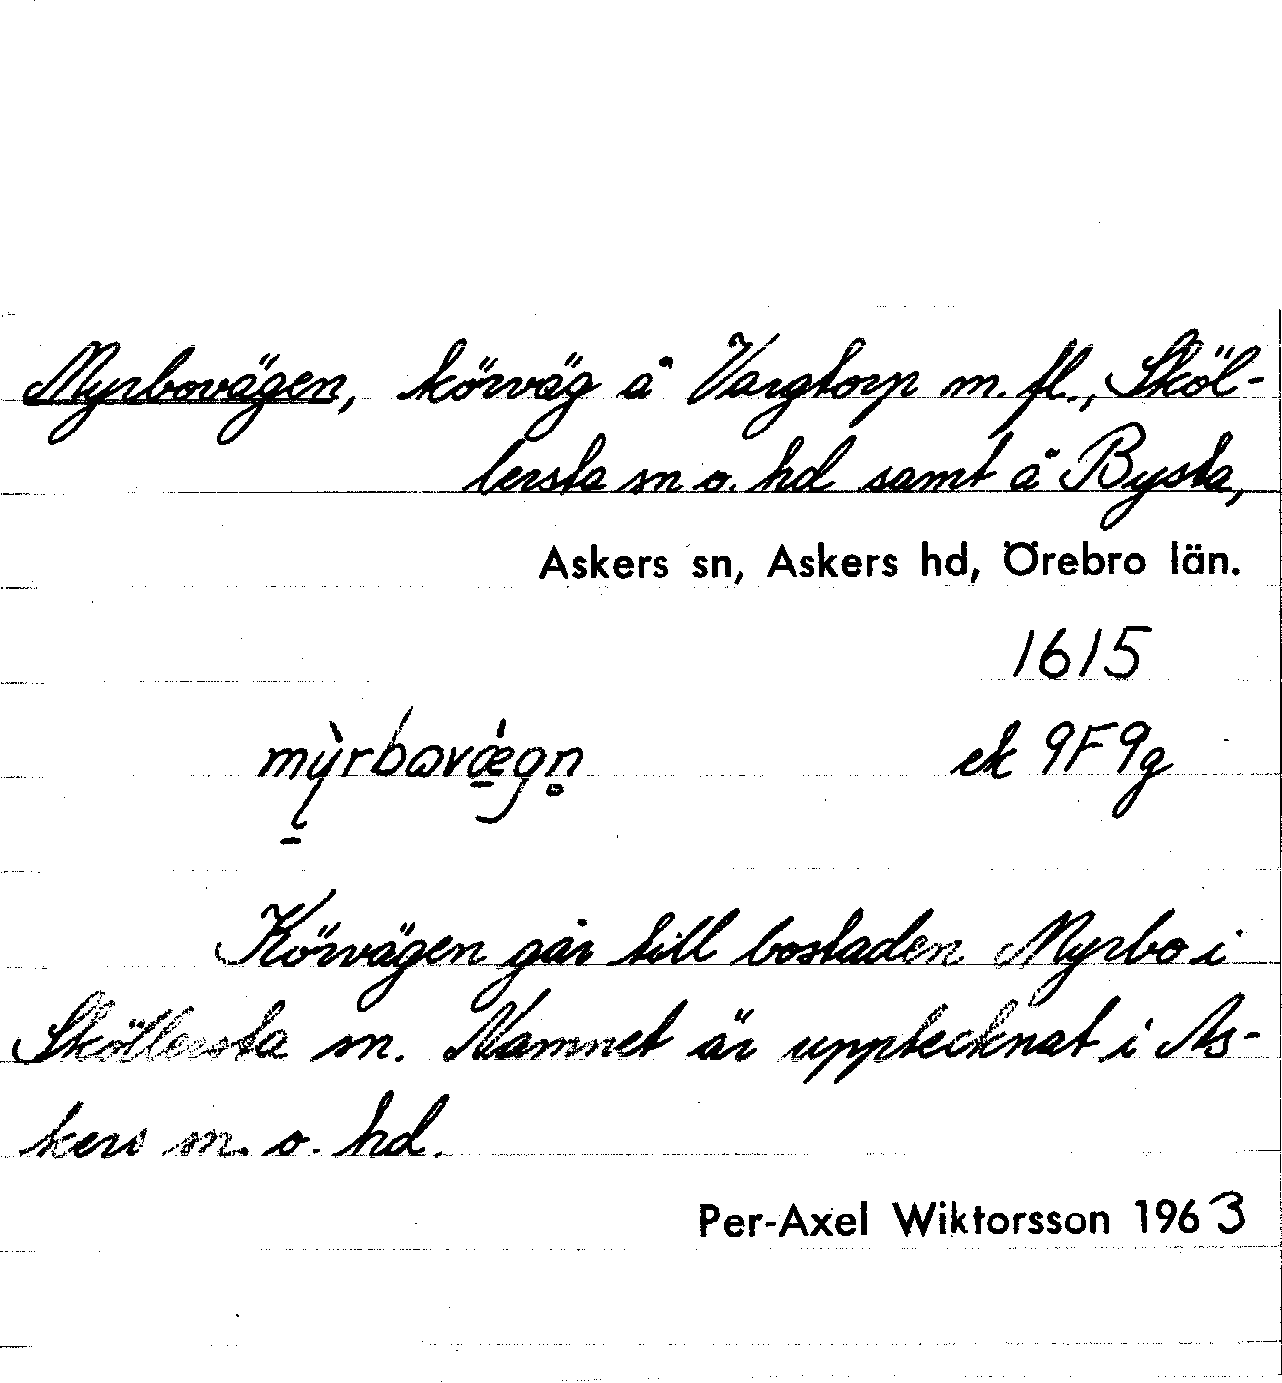 Myrbovägen, körväg å Vargtorp m. fl., Sköl-
lersta sn o. hd samt å Bysta,
Askers sn, Askers hd, Örebro län.
1615
ek 9F9g
Körvägen går till bostaden Myrbo i
Sköllersta sn. Namnet är upptecknat i As-
kers sn. o. hd.
Per-Axel Wiktorsson 1963